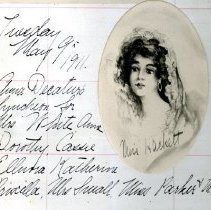 Tuesday
May 9th
1911.
Anna Decatur
Luncheon for
Mrs White Anna
Dorothy Casise
Ellnora Katherine
Mrs Small Miss Parker &
Miss Hackett